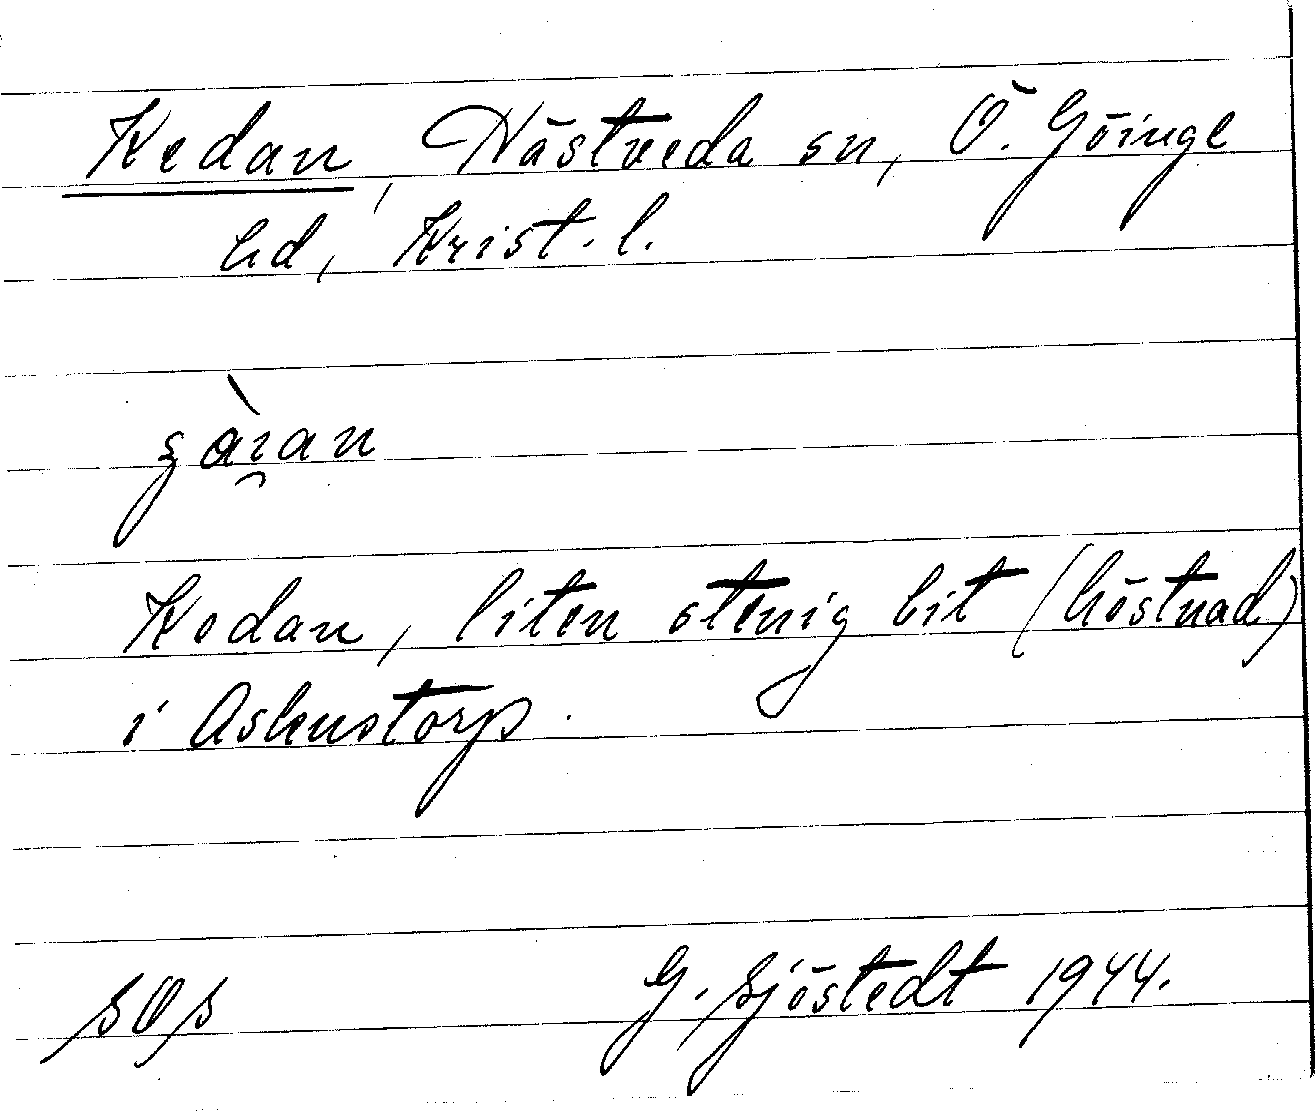 Kedan, Nästveda sn, Ö. Göinge
hd, Krist. l.
Kedan, liten stenig bit (höstnad)
i Askenstorp.
SOS G. Sjöstedt 1944.